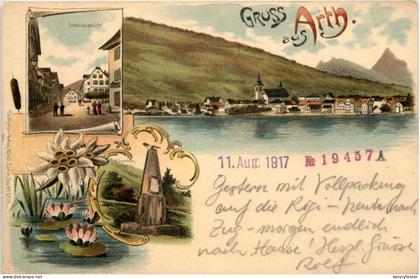 Gruss
aus Arth.
Strassenansicht
11. Aug. 1917 № 19437A
Gestern mit Vollpackung
auf die Rigi - heute nach
Zug - morgen endlich
nach Hause! Herzl. Grüsse
Rolf